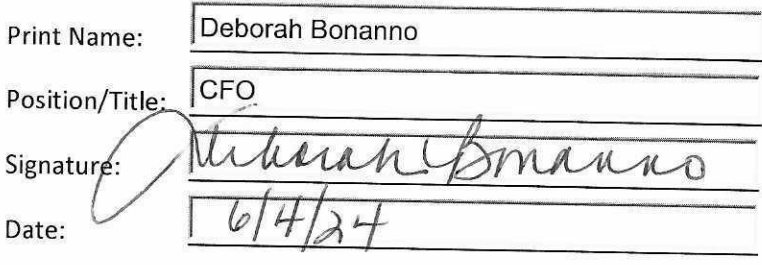 Print Name: Deborah Bonanno
Position/Title: CFO
Signature: Deborah Bonanno
Date: 6/4/24